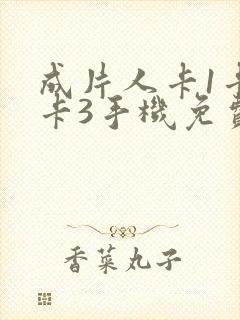 成片人卡1卡
卡3手機免費
香菜丸子